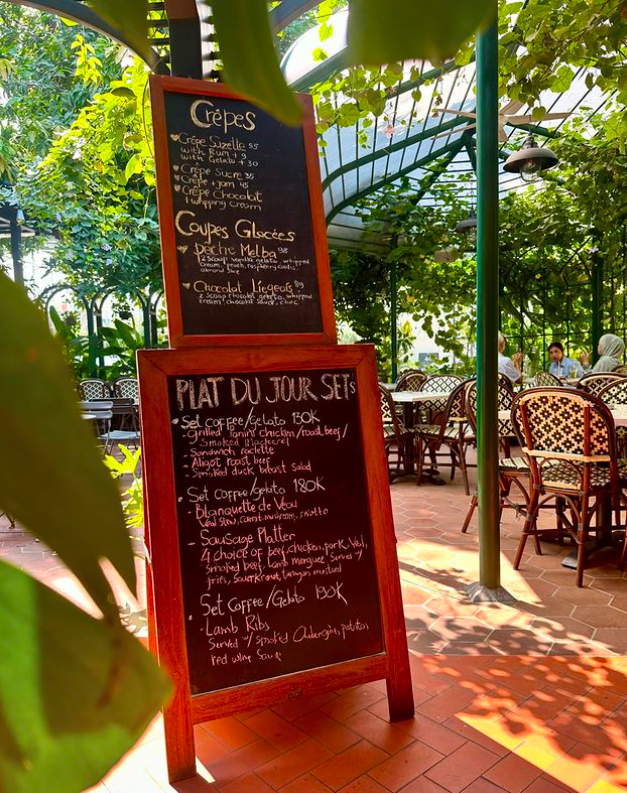 Crêpes
Crêpe Suzette 55
with Rum + 9
with Gelato + 30
Crêpe Sucre 35
Crêpe + Jam 45
Crêpe Chocolat
whipping cream
Coupes Glacées
Pêche Melba 98
2 Scoop vanilla gelato, whipped
cream, peach, raspberry coulis,
almond
Chocolat Liegeois 89
2 Scoop chocolat gelato, whipped
cream, chocolat sauce,
PLAT DU JOUR SETs
Set coffee/Gelato 130K
- Grilled Panini chicken/roast beef/
Smoked Mackerel
- Sandwich raclette
- Aligot roast beef
- Smoked duck breast Salad
Set coffee/gelato 180K
- Blanquette de Veau
Veal stew, carrot-mushroom - risotto
- Sausage Platter
4 choice of beef, chicken, pork, Veal,
Smoked beef, Lamb merguez Serve w/
fries, Saurkraut, tarragon mustard
Set Coffee/Gelato 190K
- Lamb Ribs
Served w/ Smoked Aubergine, potatoes,
red wine Sauce